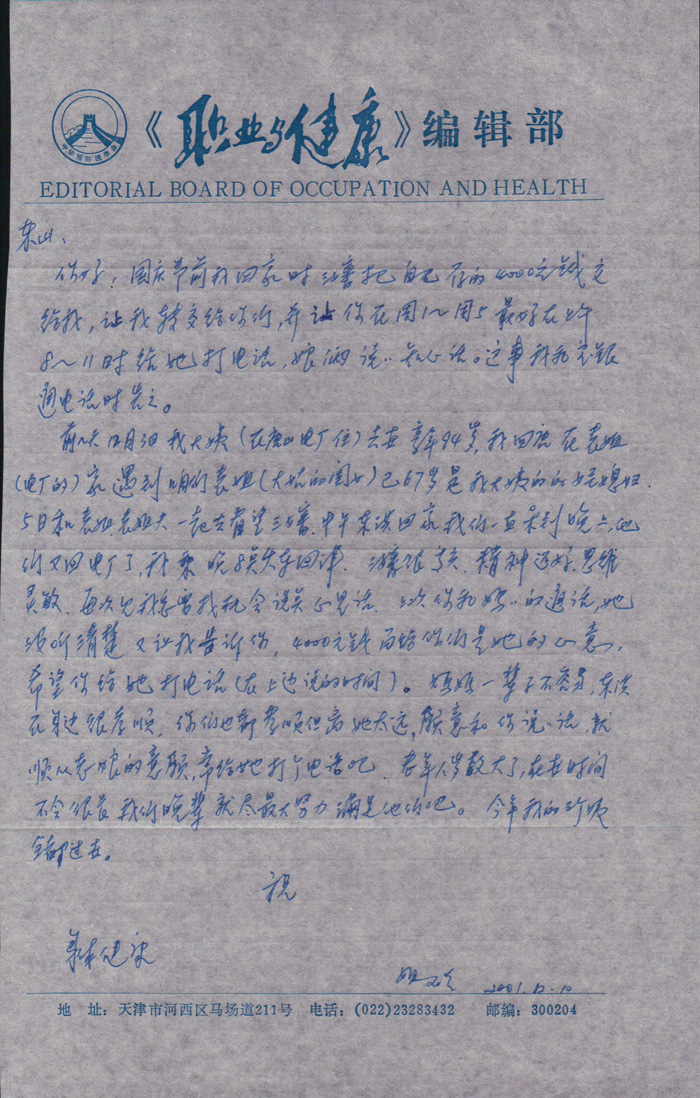 《职业与健康》编辑部
EDITORIAL BOARD OF OCCUPATION AND HEALTH
东山:
你好!国庆节前我回家时三婶把自己存的4000元钱交
给我,让我转交给你们,并让你在周1~周5最好在上午
8~11时给她打电话,娘俩说说知心话。这事我和
通电话时告之。
前几天12月3日我大姨(在唐山电厂住)去世享年94岁,我回在表姐
(电厂的)家遇到咱们表姐(大姑的闺女)已67岁是我大姨的的媳妇.
5日和表姐表姐夫一起去看望三婶,中午东洪回家我们一直呆到晚六,他
们又回电厂了,我乘晚8火车回津.三婶很,精神还好,思维
灵敏.再次见我总要找机会说说心里话.以你和妈妈的通话,她
没听清楚又让我告诉你,4000元钱留给你们是她的心意,
希望你给她打电话(在上边说的时间)。妈妈一辈子不容易,东洪
在身边很孝顺,你们也都孝顺但离她太远,愿意和你说说话,就
顺从老娘的意愿,常给她打个电话吧.老年人岁数大了,健在时间
不会很长我们晚辈就尽最大努力满足他们吧。今年我的
全都过去。
祝
身体健康
2001.12.10
地 址:天津市河西区马场道211号 电话:(022)23283432 邮编:300204